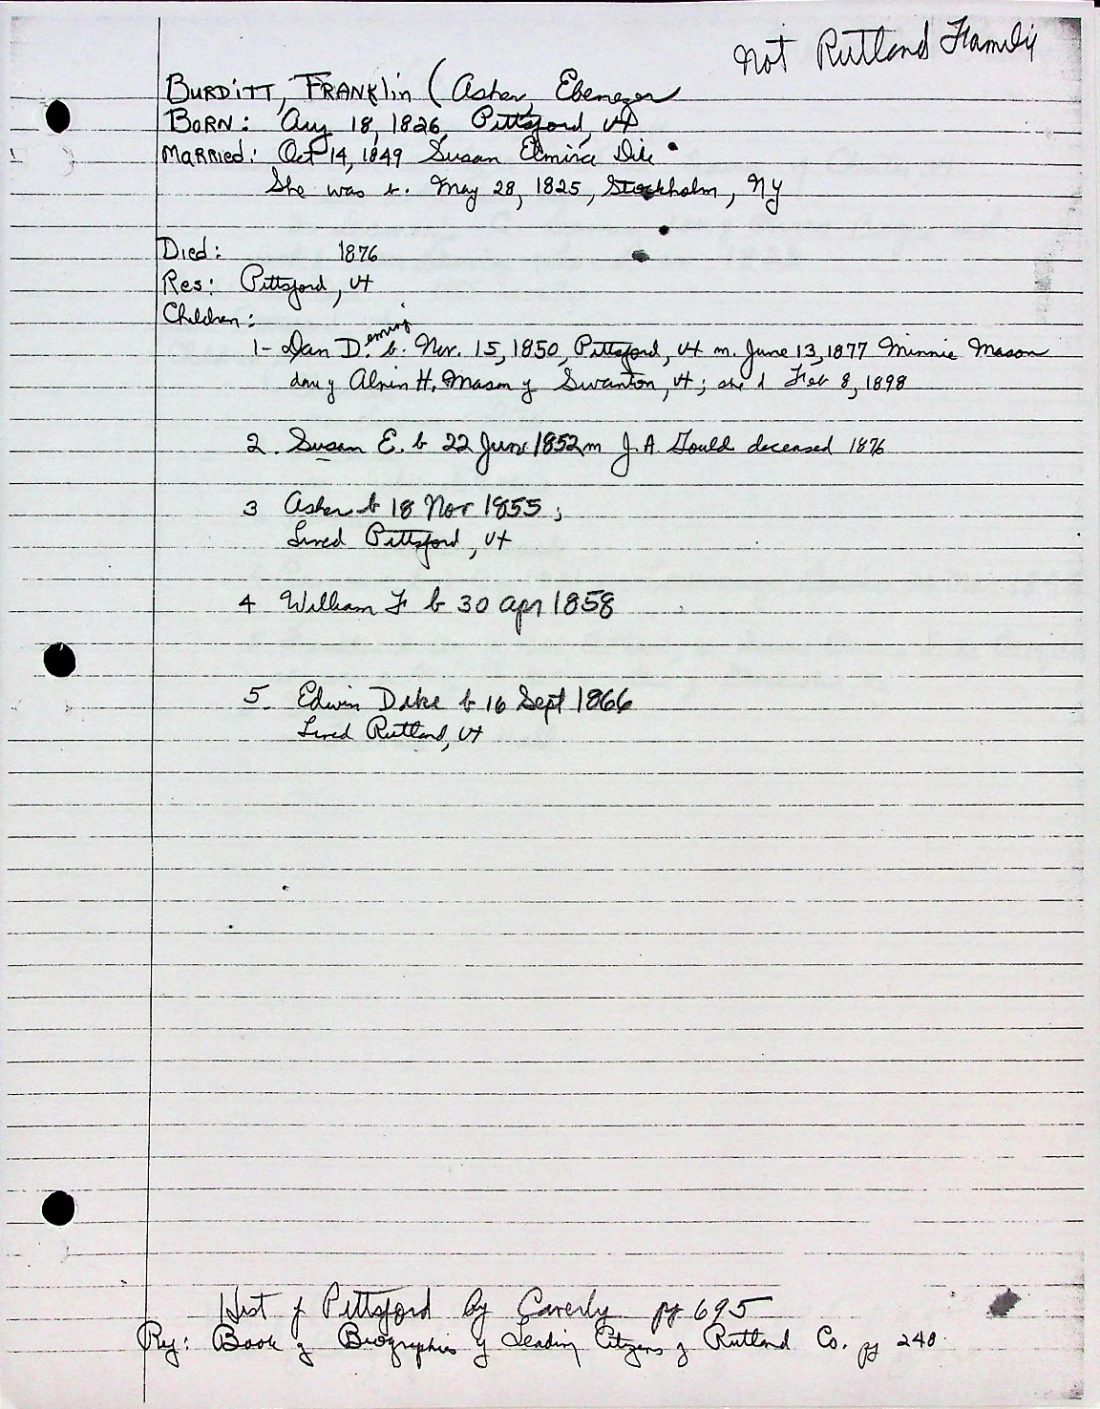 Not Rutland Family
BURDITT, FRANKlin (Asher, Ebenezer
BORN: Aug 18, 1826, Pittsford, Vt
Married: Oct 14, 1849 Susan Elmira Dike
She was b. May 28, 1825, Stockholm, NY
Died: 1876
Res: Pittsford, Vt
Children:
eming
1- Dan D. b. Nov. 15, 1850, Pittsford, Vt m. June 13, 1877 Minnie Mason
dau of Alvin H. Mason of Swanton, Vt; she d Feb 8, 1898
2. Susan E. b 22 June 1852 m J.A. Gould deceased 1876
3 Asher b 18 Nov 1855;
Lived Pittsford, Vt
4 William F b 30 Apr 1858
5. Edwin Dake b 16 Sept 1866
Lived Rutland, Vt
Hist of Pittsford by Caverly pg 695
Book of Biographies of Leading Citizens of Rutland Co. pg 240